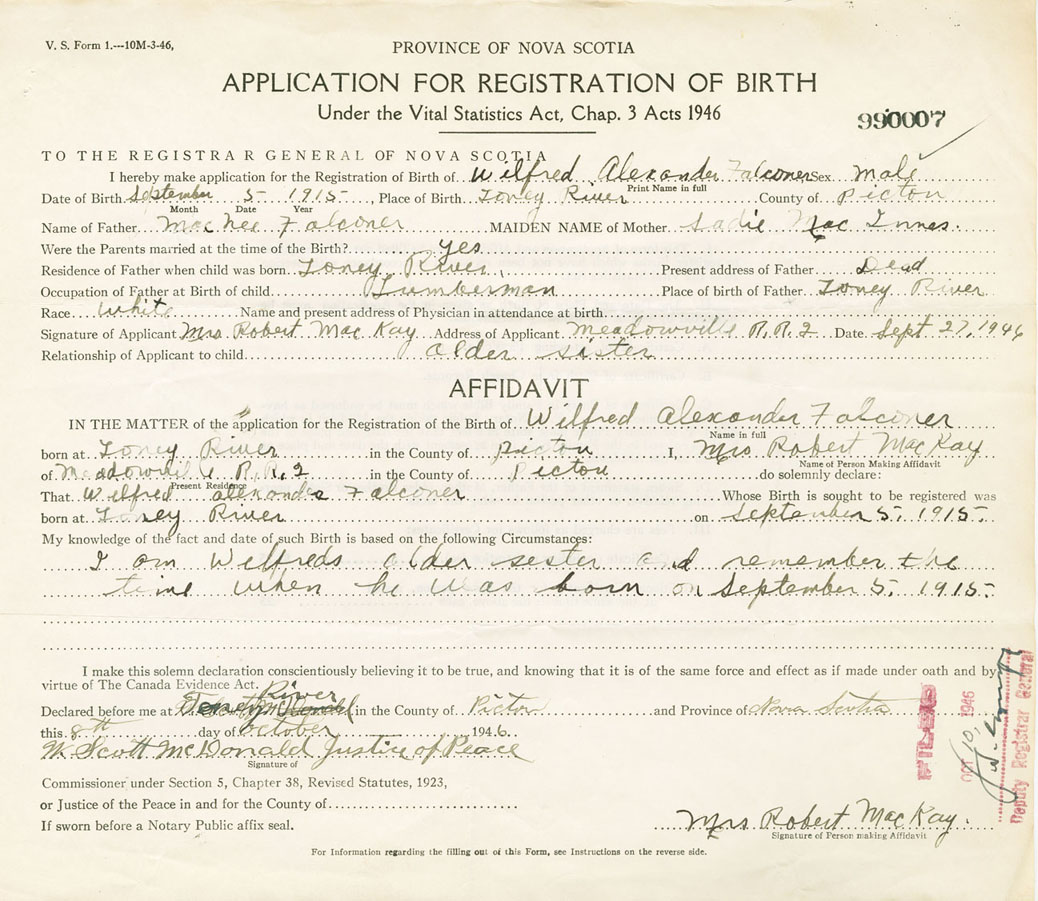 V. S. Form 1.---10M-3-46,
PROVINCE OF NOVA SCOTIA
APPLICATION FOR REGISTRATION OF BIRTH
Under the Vital Statistics Act, Chap. 3 Acts 1946
990007
TO THE REGISTRAR GENERAL OF NOVA SCOTIA
I hereby make application for the Registration of Birth of Wilfred Alexander Falconer Sex male
Print Name in full
Date of Birth September 5 1915, Place of Birth Toney River County of Picton
Month Date Year
Name of Father MacNee Falconer MAIDEN NAME of Mother Sadie Mac Innes.
Were the Parents married at the time of the Birth? yes
Residence of Father when child was born Toney River, Present address of Father Dead
Occupation of Father at Birth of child Lumberman Place of birth of Father Toney River
Race white Name and present address of Physician in attendance at birth
Signature of Applicant Mrs Robert Mac Kay Address of Applicant Meadowville R.R.2 Date Sept 27, 1946
Relationship of Applicant to child older sister
AFFIDAVIT
IN THE MATTER of the application for the Registration of the Birth of Wilfred Alexander Falconer
Name in full
born at Toney River in the County of Picton I, Mrs Robert MacKay
Name of Person Making Affidavit
of Meadowville R.R.2 in the County of Picton do solemnly declare:
Present Residence
That Wilfred Alexander Falconer Whose Birth is sought to be registered was
born at Toney River on September 5, 1915.
My knowledge of the fact and date of such Birth is based on the following Circumstances:
I am Wilfreds older sester and remember the
time when he was born on September 5, 1915.
I make this solemn declaration conscientiously believing it to be true, and knowing that it is of the same force and effect as if made under oath and by
virtue of The Canada Evidence Act.
Declared before me at Toney River in the County of Picton and Province of Nova Scotia
this 8th day of October 1946.
W. Scott McDonald Justice of Peace
Signature of
Commissioner under Section 5, Chapter 38, Revised Statutes, 1923,
or Justice of the Peace in and for the County of
If sworn before a Notary Public affix seal.
Mrs Robert MacKay.
Signature of Person making Affidavit
For Information regarding the filling out of this Form, see Instructions on the reverse side.
FILED
OCT 10, 1946
Deputy Registrar General